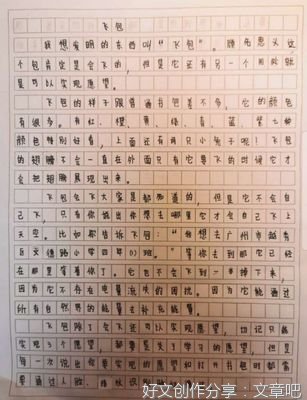 飞包
我想发明的东西叫“飞包”。顾名思义这
个包肯定是会飞的，但是它还有另一个用处就
是可以实现愿望。
飞包的样子跟普通书包差不多，它的颜色
有很多。有红、橙、黄、绿、青、蓝、紫七种
颜色特别好看，上面还有两只小兔子呢！飞包
的翅膀不会一直在外面只有它要飞的时候它才
会把翅膀展现出来。
飞包会飞大家是都知道的，但是它不会自
己飞，只有你说出你想去哪里它才会自己飞上
天空。比如你告诉飞包：“我想去广州市越秀
区文德路小学四年(1)班。”等你去到那它已经
在那里等着你了。它也不会飞到一半掉下来，
因为它不存在电量流失的困扰。因为它能通过
所有自然界的能量去补充能量。
飞包除了会飞还可以实现愿望，切记只能
实现3个愿望，都要是关于学习的愿望，但是
每一次说出你要实现的愿望和打开书包时都需
要通过人脸、指纹识
好文创作分享：文章吧